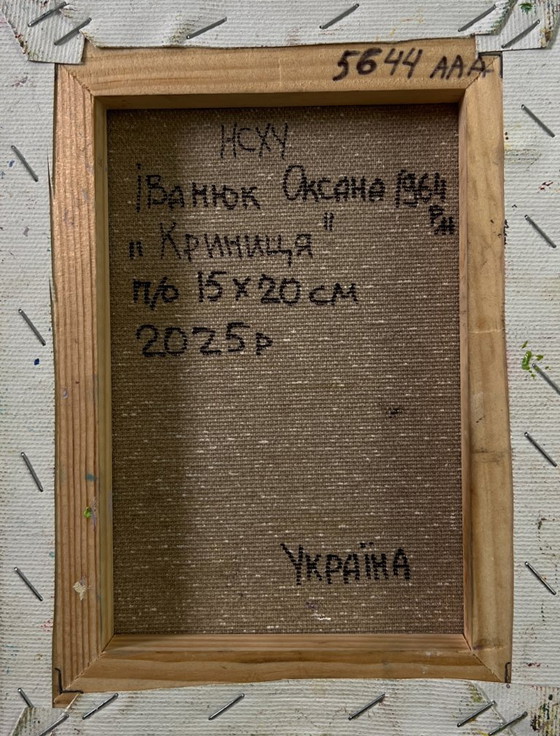 5644 AAA
НСХУ
Іванюк Оксана 1964
р.н
„ Криниця "
п/о 15 x 20 см
2025р
Україна